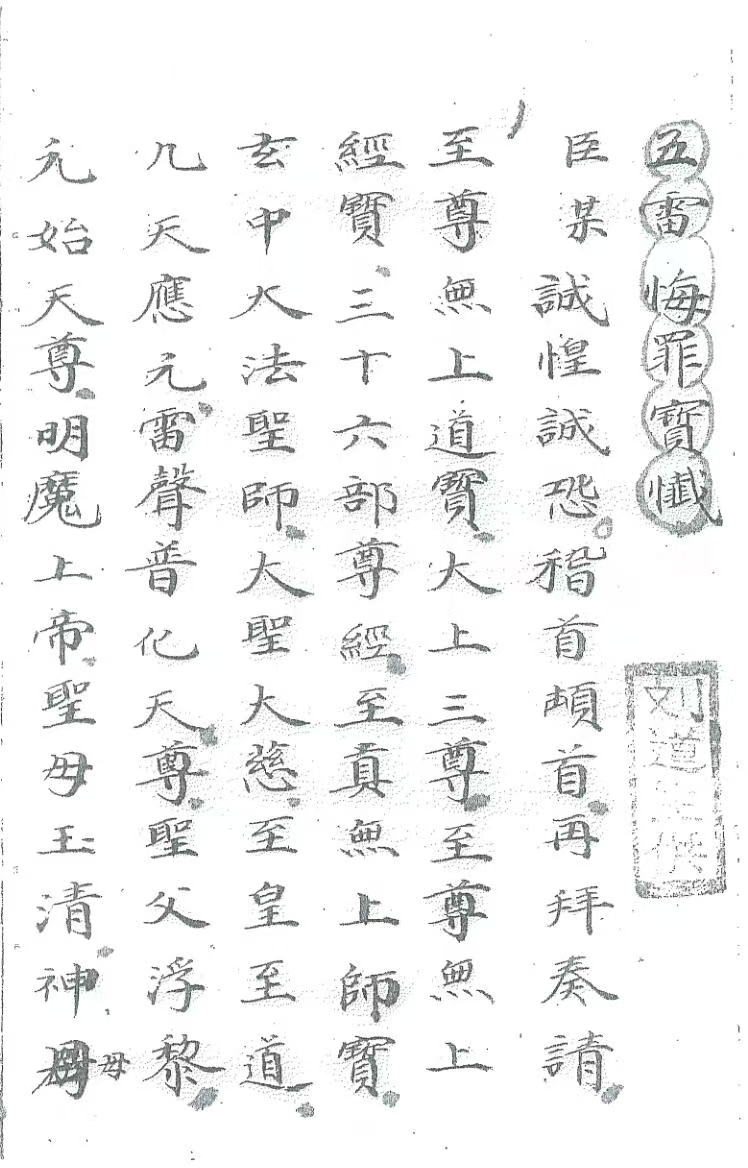 五雷悔罪寶懺
刘道
臣某誠惶誠恐稽首頓首再拜奏請
至尊無上道寶大上三尊至尊無上
經寶三十六部尊經至真無上師寶
玄中大法聖師大聖大慈至皇至道
九天應元雷聲普化天尊聖父浮黎
元始天尊明魔上帝聖母玉清神母